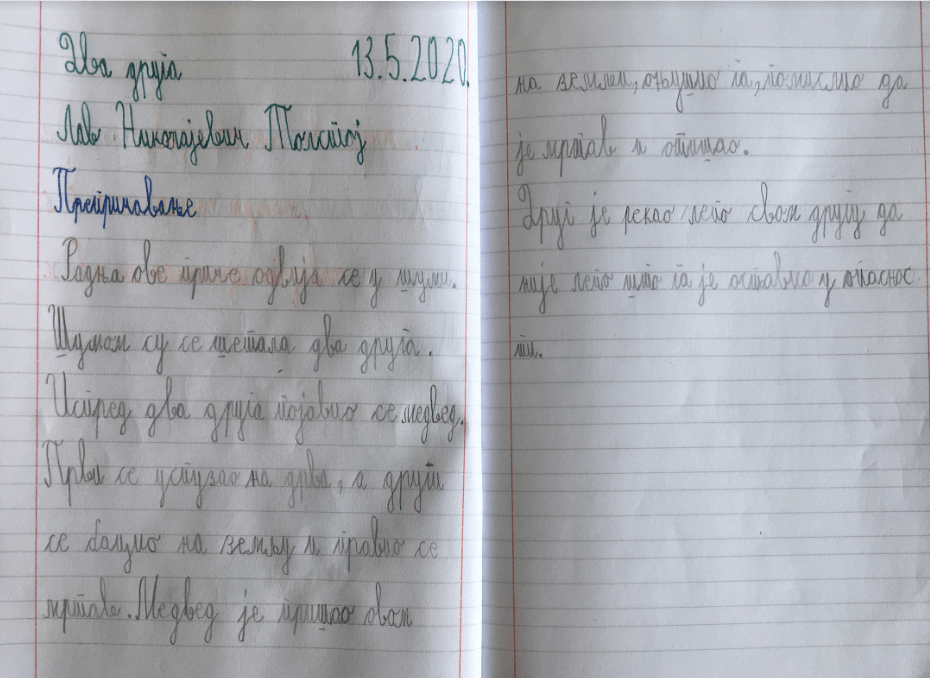 Два друга 13.5.2020.
Лав Николајевич Толстој
Препричавање
Радња ове приче одвија се у шуми.
Шумом су се шетала два друга.
Испред два друга појавио се медвед.
Први се успузао на дрва, а други
се бацио на земљу и правио се
мртав. Медвед је пришао овом
на земљи, оњушио га, помислио да
је мртав и отишао.
Друг је рекао лепо свом другу да
није лепо што га је оставио у опаснос-
ти.